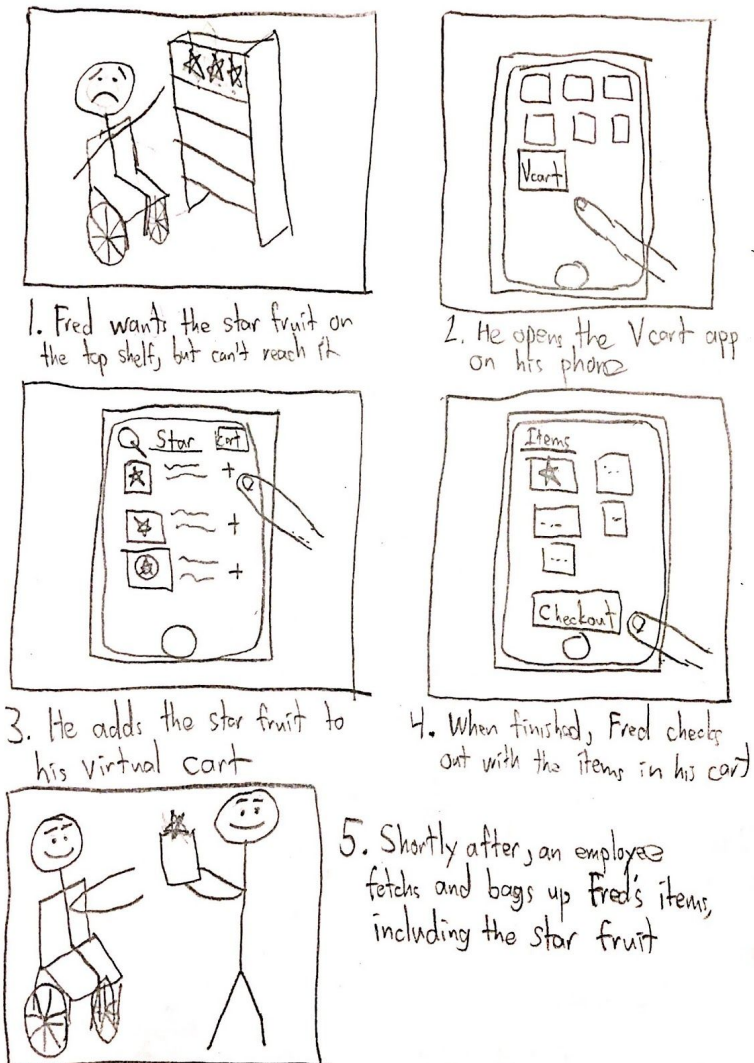 Vcart
1. Fred wants the star fruit on
the top shelf, but can't reach it
2. He opens the Vcart app
on his phone
Star Cart
+
+
+
3. He adds the star fruit to
his virtual cart
Items
...
...
...
Checkout
4. When finished, Fred checks
out with the items in his cart
5. Shortly after, an employee
fetchs and bags up Fred's items,
including the star fruit